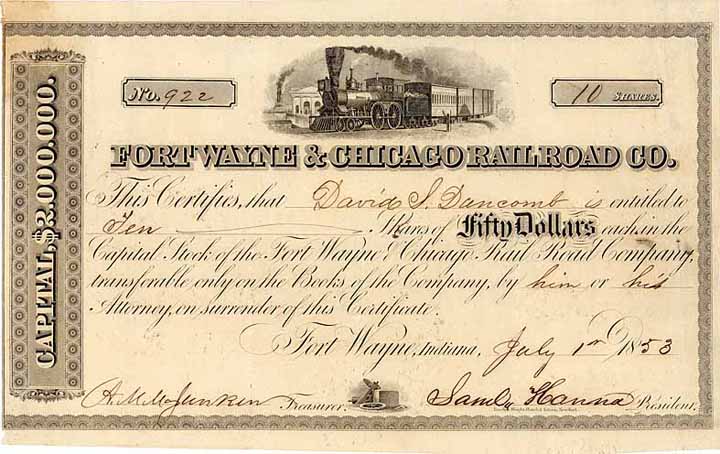 CAPITAL, $2.000.000.
No. 922
10 SHARES.
FORT WAYNE & CHICAGO RAILROAD CO.
This Certifies, that David S. Duncomb is entitled to
Ten Shares of Fifty Dollars each in the
Capital Stock of the Fort Wayne & Chicago Rail Road Company,
transferable only on the Books of the Company, by him or his
Attorney, on surrender of this Certificate.
Fort Wayne, Indiana, July 1st 1853
Treasurer. Saml Hanna President.